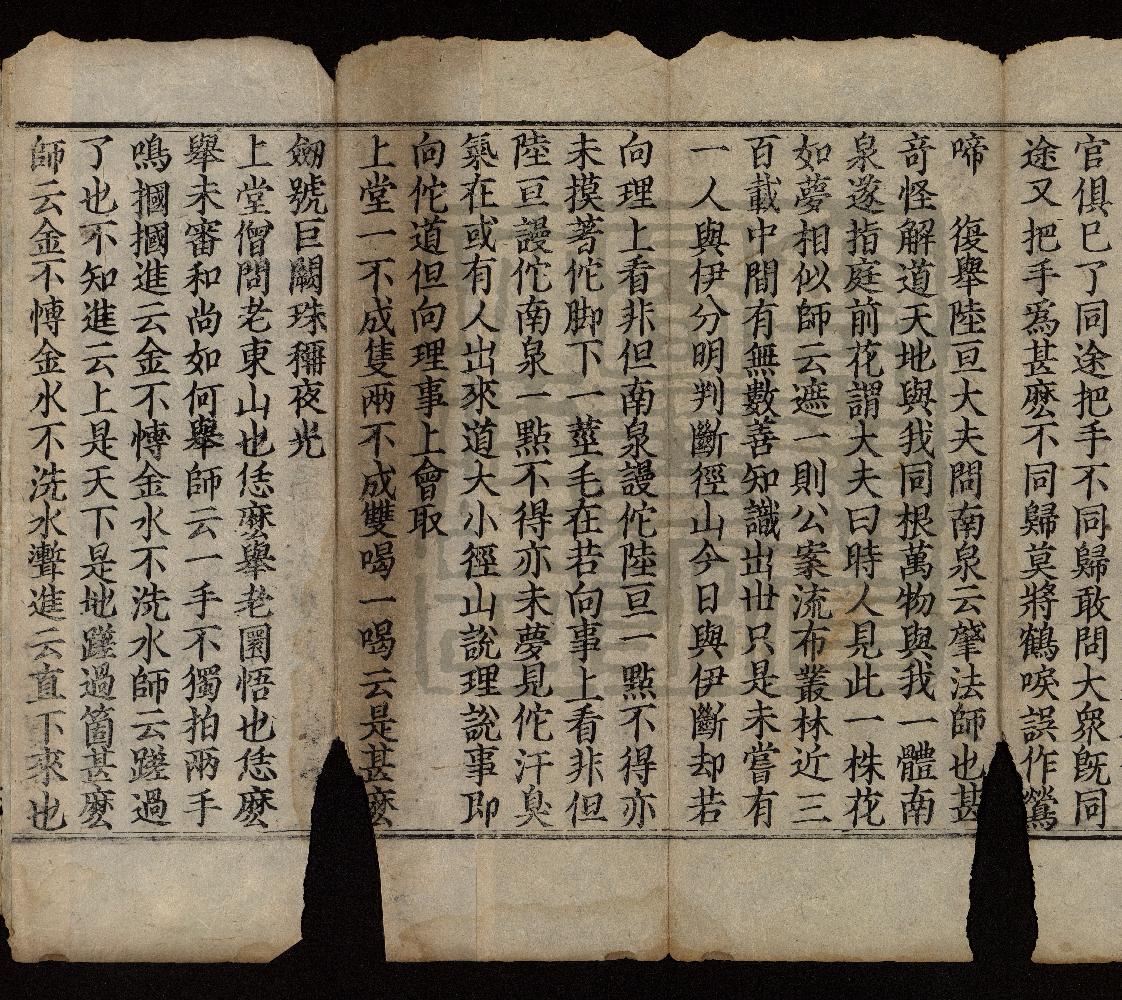 官俱巳了同途把手不同歸敢問大衆旣同
途又把手爲甚麽不同歸莫將鶴唳誤作鶯
啼　復舉陸亘大夫問南泉云肇法師也甚
竒怪解道天地與我同根萬物與我一體南
泉遂指庭前花謂大夫曰時人見此一株花
如夢相似師云遮一則公案流布叢林近三
百載中間有無數善知識出世只是未嘗有
一人與伊分明判斷徑山今日與伊斷却若
向理上看非但南泉謾佗陸亘一點不得亦
未摸著佗脚下一莖毛在若向事上看非但
陸亘謾佗南泉一點不得亦未夢見佗汗臭
氣在或有人出來道大小徑山說理說事即
向佗道但向理事上會取
上堂一不成隻兩不成雙喝一喝云是甚麽
劒號巨闕珠稱夜光
上堂僧問老東山也恁麽舉老圜悟也恁麽
舉未審和尚如何舉師云一手不獨拍兩手
鳴摑摑進云金不愽金水不洗水師云蹉過
了也不知進云上是天下是地蹉過箇甚麽
師云金不愽金水不洗水聻進云直下來也